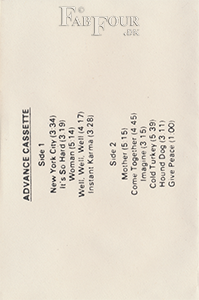 FABFOUR
.DK
ADVANCE CASSETTE
Side 1
New York City (3:34)
It's So Hard (3:19)
Woman (5:14)
Well, Well, Well (4:17)
Instant Karma (3:28)
Side 2
Mother (5:15)
Come Together (4:45)
Imagine (3:15)
Cold Turkey (5:39)
Hound Dog (3:11)
Give Peace (1:00)